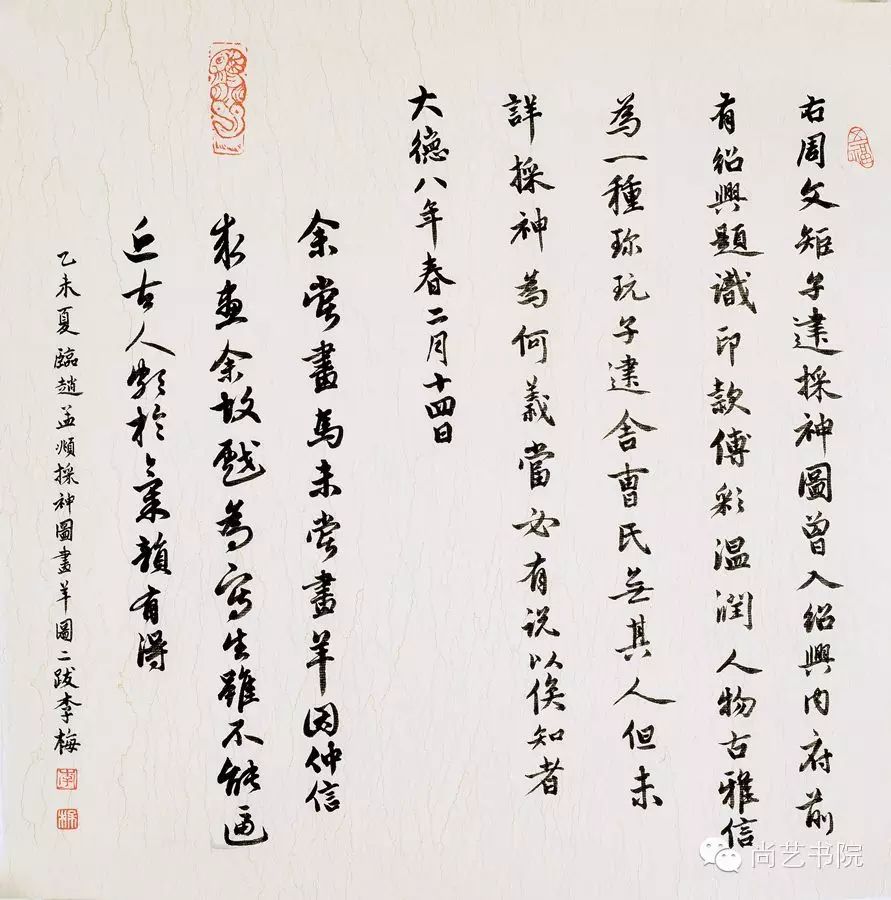 右周文矩子建採神圖曾入紹興内府前
有紹興題識印款傅彩温潤人物古雅信
為一種珎玩子建舍曹氏無其人但未
詳採神為何義當必有説以俟知者
大德八年春二月十四日
余嘗畫馬未嘗畫羊因仲信
求畫余故戲為寫生雖不能逼
近古人頗於氣韻有得
乙未夏臨趙孟頫採神圖畫羊圖二跋李梅
五福
李
梅
尚艺书院